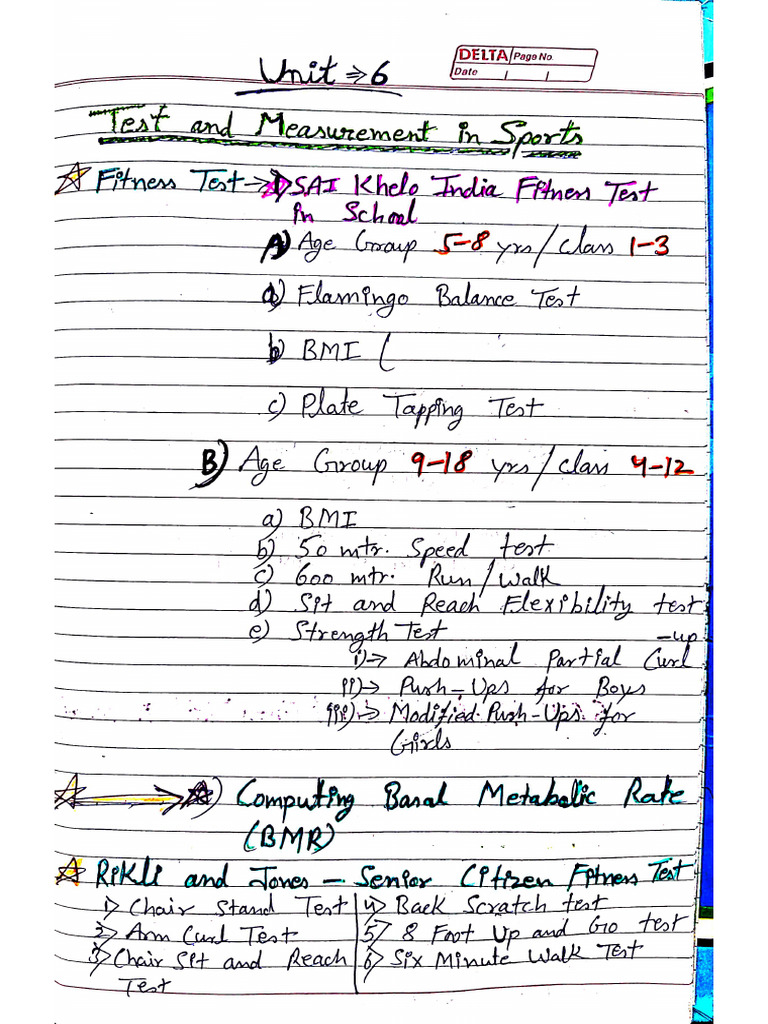 Unit ⇒ 6
DELTA Page No.
Date
Test and Measurement in Sports
Fitness Test → 1) SAI Khelo India Fitness Test
in School
A) Age Group 5-8 yrs/class 1-3
a) Flamingo Balance Test
b) BMI (
c) Plate Tapping Test
B) Age Group 9-18 yrs/class 4-12
a) BMI
b) 50 mtr. Speed test
c) 600 mtr. Run/Walk
d) Sit and Reach Flexibility test
e) Strength Test
i) → Abdominal Partial Curl -up
ii) → Push-Ups for Boys
iii) → Modified Push-Ups for
Girls
Computing Basal Metabolic Rate
(BMR)
Rikli and Jones - Senior Citizen Fitness Test
1) Chair Stand Test
2) Arm Curl Test
3) Chair Sit and Reach
Test
4) Back Scratch test
5) 8 Foot Up and Go test
6) Six Minute Walk Test